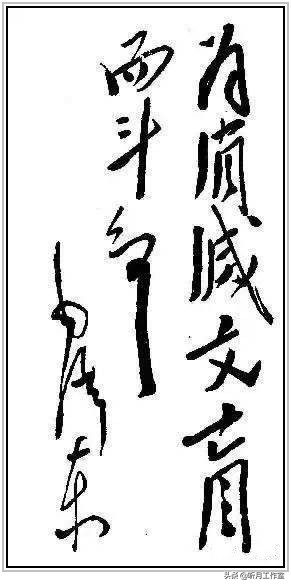 为消灭文盲
而斗争
毛泽东
头条@听月工作室